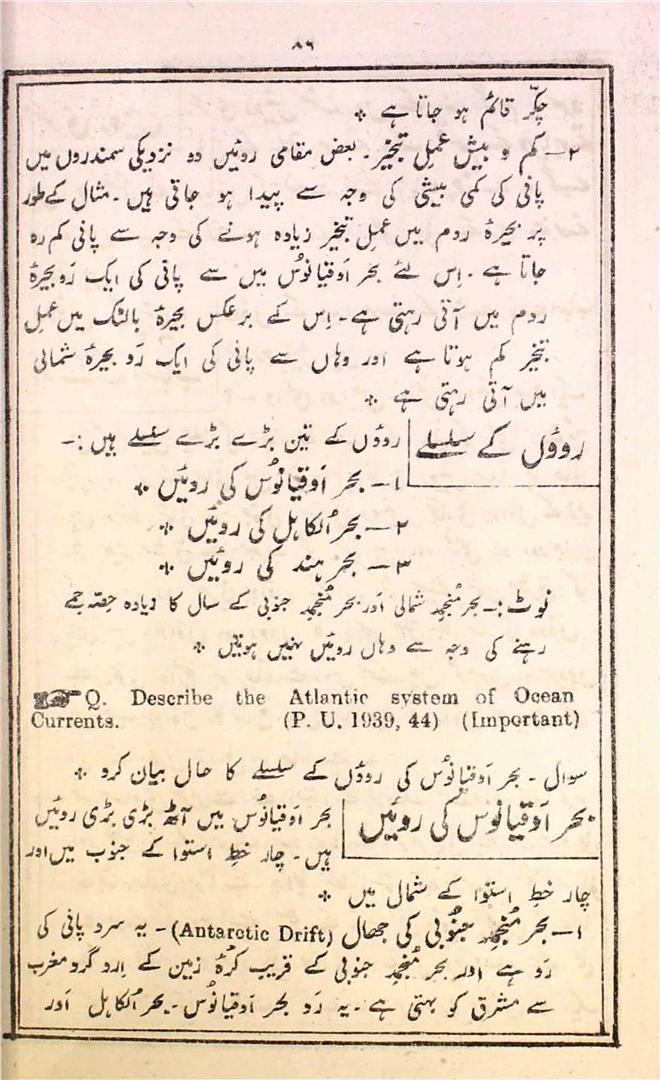 ۸۶
چکّر قائم ہو جاتا ہے *
۲ـ کم و بیش عملِ تبخیر۔ بعض مقامی روئیں دو نزدیکی سمندروں میں
پانی کی کمی بیشی کی وجہ سے پیدا ہو جاتی ہیں۔ مثال کے طور
پر بحیرۂ روم میں عملِ تبخیر زیادہ ہونے کی وجہ سے پانی کم رہ
جاتا ہے۔ اِس لئے بحرِ اَوقیانُوس میں سے پانی کی ایک رَو بحیرۂ
روم میں آتی رہتی ہے۔ اِس کے برعکس بحیرۂ بالٹک میں عملِ
تبخیر کم ہوتا ہے اور وہاں سے پانی کی ایک رَو بحیرۂ شمالی
میں آتی رہتی ہے *
روؤں کے سلسلے
روؤں کے تین بڑے بڑے سلسلے ہیں :۔
۱ـ بحرِ اَوقیانُوس کی روئیں *
۲ـ بحرُ الکاہل کی روئیں *
۳ـ بحرِ ہند کی روئیں *
نوٹ :۔ بحر مُنجمد شمالی اَور بحر مُنجمد جنوبی کے سال کا زیادہ حِصّہ جمے
رہنے کی وجہ سے وہاں روئیں نہیں ہوتیں *
Q. Describe the Atlantic system of Ocean
Currents. (P. U. 1939, 44) (Important)
سوال ۔ بحرِ اَوقیانُوس کی روؤں کے سلسلے کا حال بیان کرو *
بحرِ اَوقیانُوس کی روئیں
بحرِ اَوقیانُوس میں آٹھ بڑی بڑی روئیں
ہیں۔ چار خطِ استوا کے جنوب میں اور
چار خطِ استوا کے شمال میں *
۱ـ بحرِ مُنجمد جنُوبی کی جھال (Antarctic Drift)۔ یہ سرد پانی کی
رَو ہے اور بحرِ مُنجمد جنوبی کے قریب کُرۂ زمین کے اِرد گرد مغرب
سے مشرق کو بہتی ہے۔ یہ رَو بحرِ اَوقیانُوس۔ بحرُ الکاہل اَور